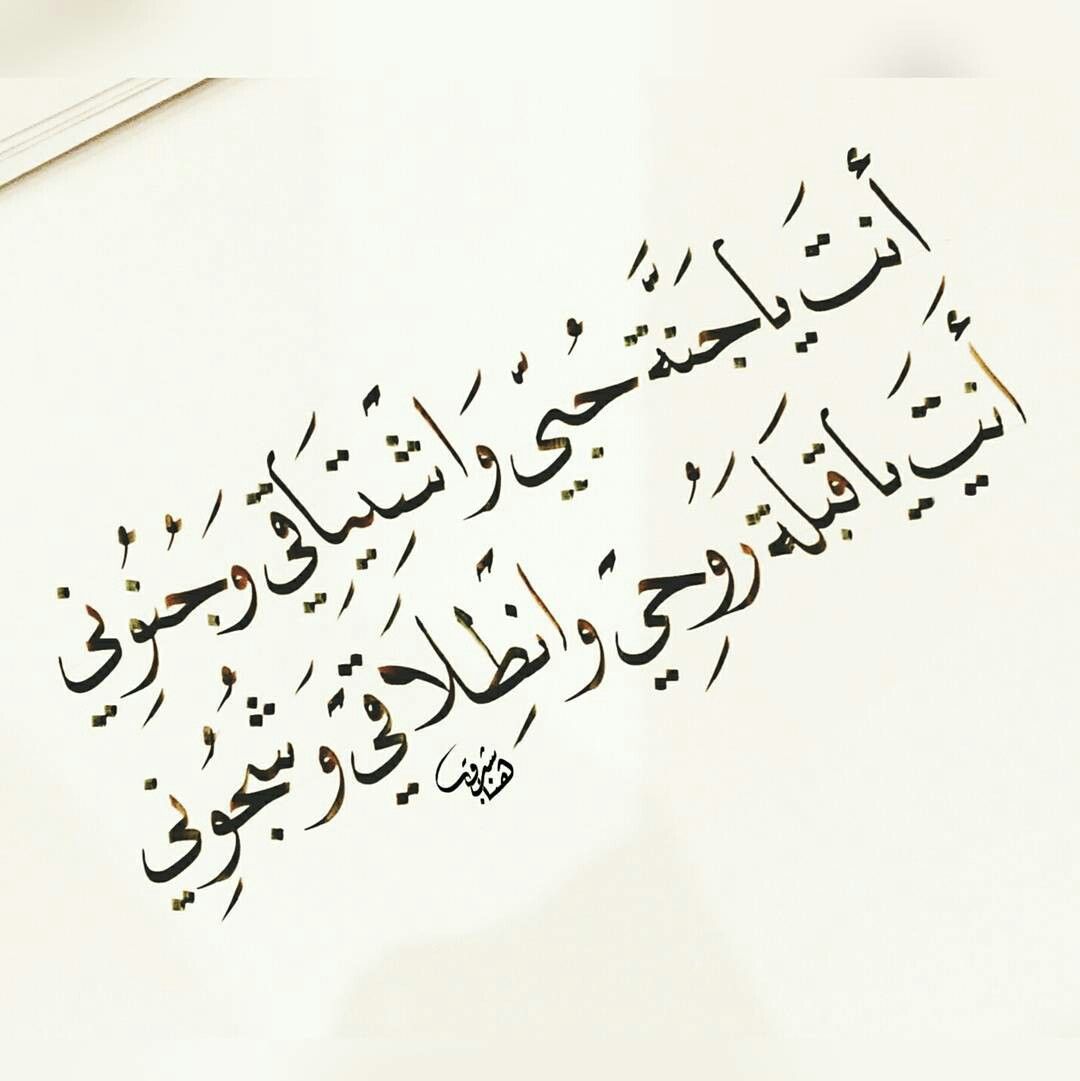 أَنتَ يَا جَنَّةَ حُبِّي وَاشْتِيَاقِي وَجُنُونِي
أَنتَ يَا قِبلَةَ رَوُحِي وَانْطِلَاقِي وَشُجُونِي